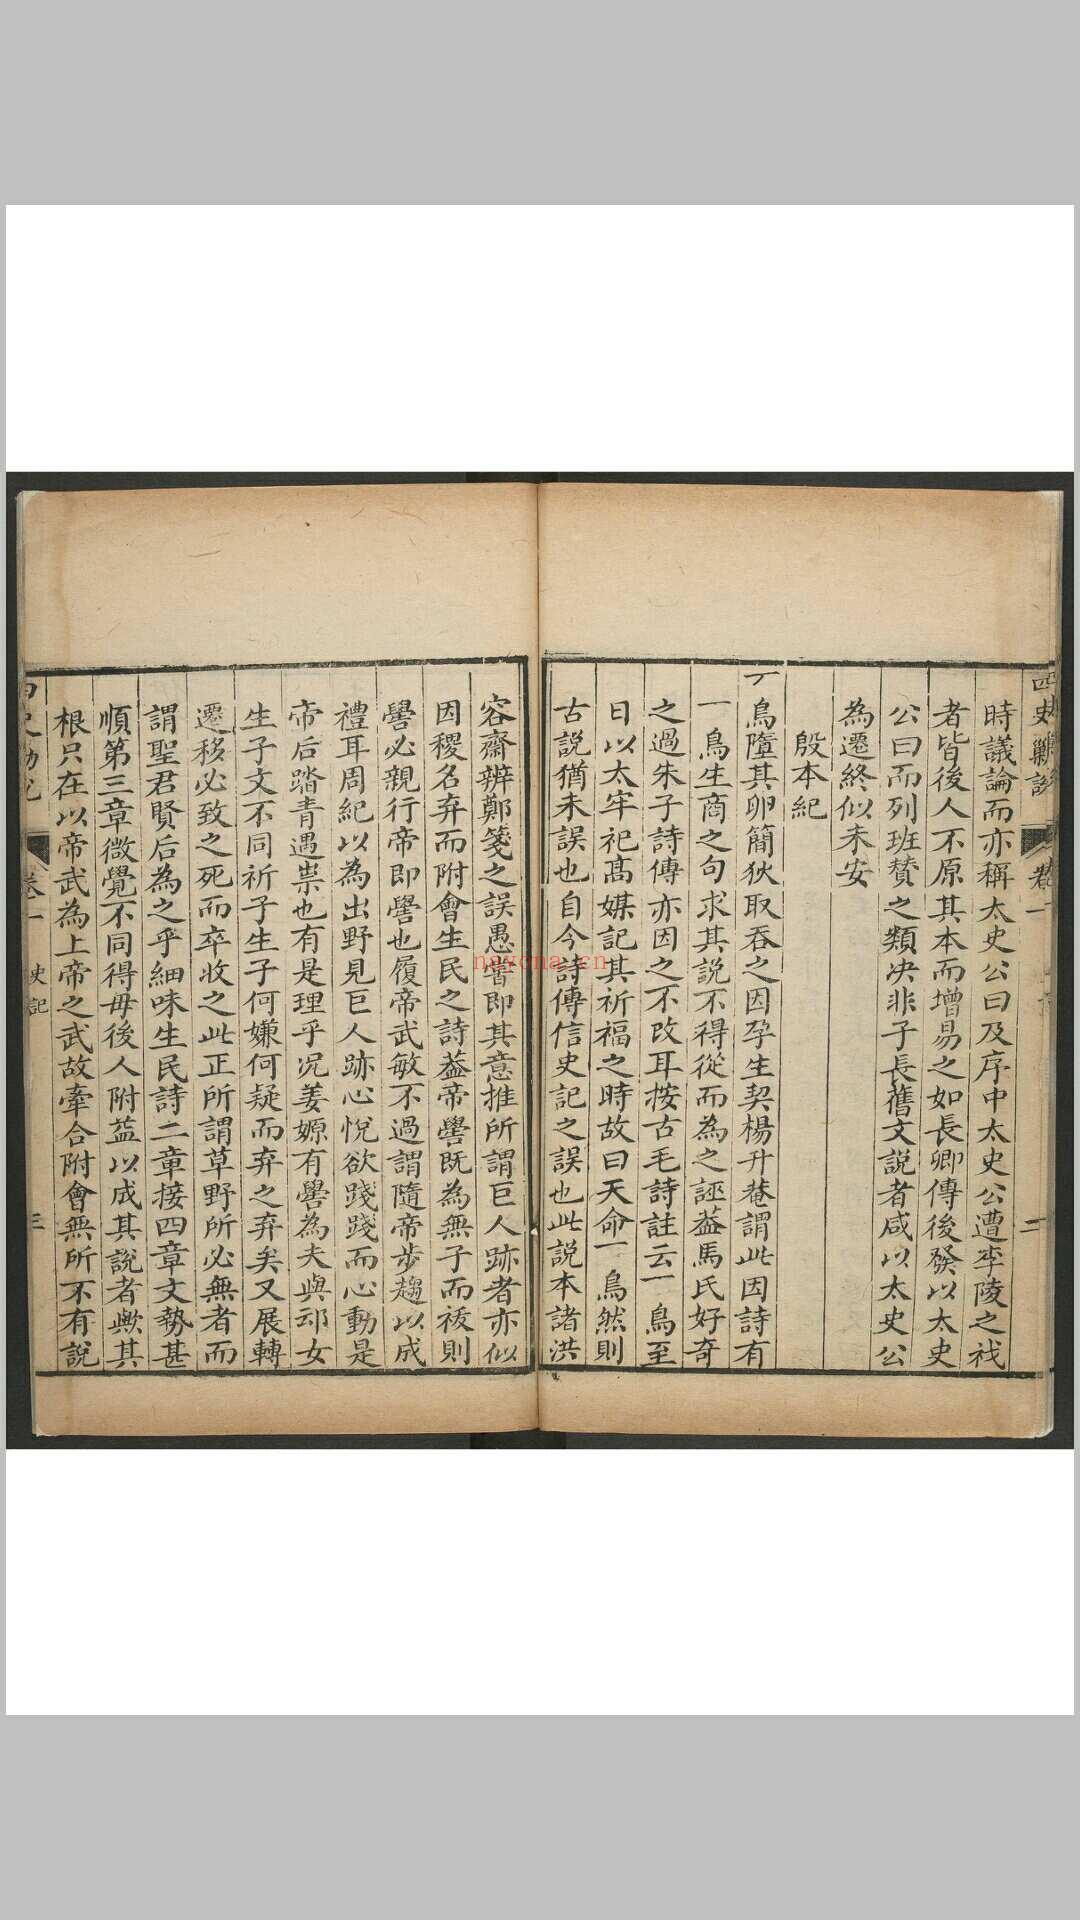 四史勦說 卷一 二
時議論而亦稱太史公曰及序中太史公遭李陵之禍
者皆後人不原其本而增易之如長卿傳後發以太史
公曰而列班贊之類决非子長舊文說者咸以太史公
為遷終似未安
殷本紀
鳥墮其卵簡狄取吞之因孕生契楊升菴謂此因詩有
鳥生商之句求其說不得從而為之誣葢馬氏好奇
之過朱子詩傳亦因之不改耳按古毛詩註云鳥至
日以太牢祀高媒記其祈福之時故曰天命鳥然則
古說猶未誤也自今詩傳信史記之誤也此說本諸洪
容齋辨鄭箋之誤愚嘗即其意推所謂巨人跡者亦似
因稷名弃而附會生民之詩葢帝嚳既為無子而祓則
嚳必親行帝即嚳也履帝武敏不過謂隨帝步趨以成
禮耳周紀以為出野見巨人跡心悅欲踐踐而心動是
帝后踏青遇祟也有是理乎况姜嫄有嚳為夫與邧女
生子文不同祈子生子何嫌何疑而弃之弃矣又展轉
遷移必致之死而卒收之此正所謂草野所必無者而
謂聖君賢后為之乎細味生民詩二章接四章文勢甚
順第三章微覺不同得毋後人附益以成其說者歟其
根只在以帝武為上帝之武故牽合附會無所不有說
卷一 史記 三
nayona.cn